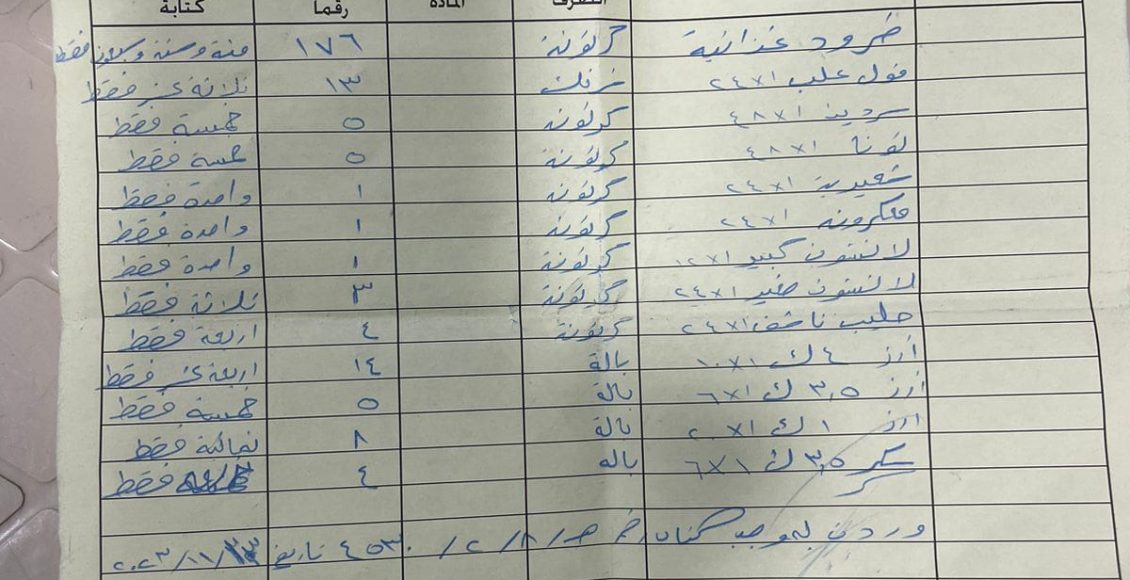 التصرف المادة رقما كتابة
طرود غذائية كرتونة ١٧٦ مئة وستة وسبعون فقط
فول علب ١×٢٤ شرنك ١٣ ثلاثة عشر فقط
سردين ١×٤٨ كرتونة ٥ خمسة فقط
تونا ١×٤٨ كرتونة ٥ خمسة فقط
شعيرية ١×٢٤ كرتونة ١ واحدة فقط
معكرونه ١×٢٤ كرتونة ١ واحدة فقط
لانشون كبير ١×١٢ كرتونة ١ واحدة فقط
لانشون صغير ١×٢٤ كرتونة ٣ ثلاثة فقط
حليب ناشف ١×٢٤ كرتونة ٤ اربعة فقط
أرز ٤ ك ١×١٠ بالة ١٤ اربعة عشر فقط
أرز ٣,٥ ك ١×٦ بالة ٥ خمسة فقط
ارز ١ ك ١×٢٠ بالة ٨ ثمانية فقط
سكر ٣,٥ ك ١×٦ باله ٤ فقط
وردت بموجب كتاب ٨/٢/ ٤٥٣٠ تاريخ ٢٠٢٣/١١/